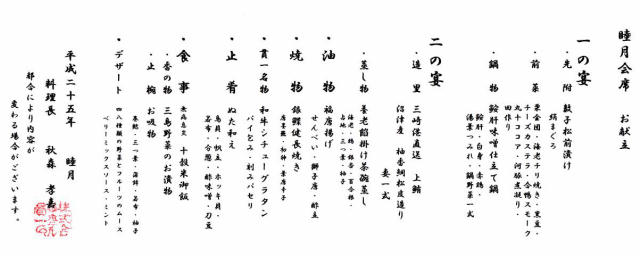 睦月会席　お献立
一の宴
・先附　数子松前漬け
絹まぐろ
・前菜　栗金団・海老チリ焼き・黒豆・
チーズカステラ・合鴨スモーク
丸十ココア・河豚煮凝り・
田作り
・鍋物　鮟肝味噌仕立て鍋
鮟肝・白身・赤鶏・
湯葉つみれ・鍋野菜一式
二の宴
・造里　三崎港直送　上鮪
沼津産　柚香鯛松皮造り
妻一式
・蒸し物　養老餡掛け茶碗蒸し
海老・鶏・銀杏・百合根・
占地・三つ葉・柚子
・油物　福唐揚げ
せんべい・獅子唐・酢立
・焼物　銀鰈健長焼き
・貫一名物　和牛シチューグラタン
パイ包み・刻みパセリ
・止肴　ぬた和え
鳥貝・帆立・ホッキ貝・
若布・分葱・酢味噌・刀豆
・食事　無農薬　十穀米御飯
・香の物　三島野菜のお漬物
・止椀　お吸物
巻鮨・三つ葉・蒲鉾・若布・柚子
・デザート　四八種類の野菜とフルーツのムース
ベリーミックスソース・ミント
平成二十五年　睦月
料理長　秋森　孝嘉
都合により内容が
変わる場合がございます。